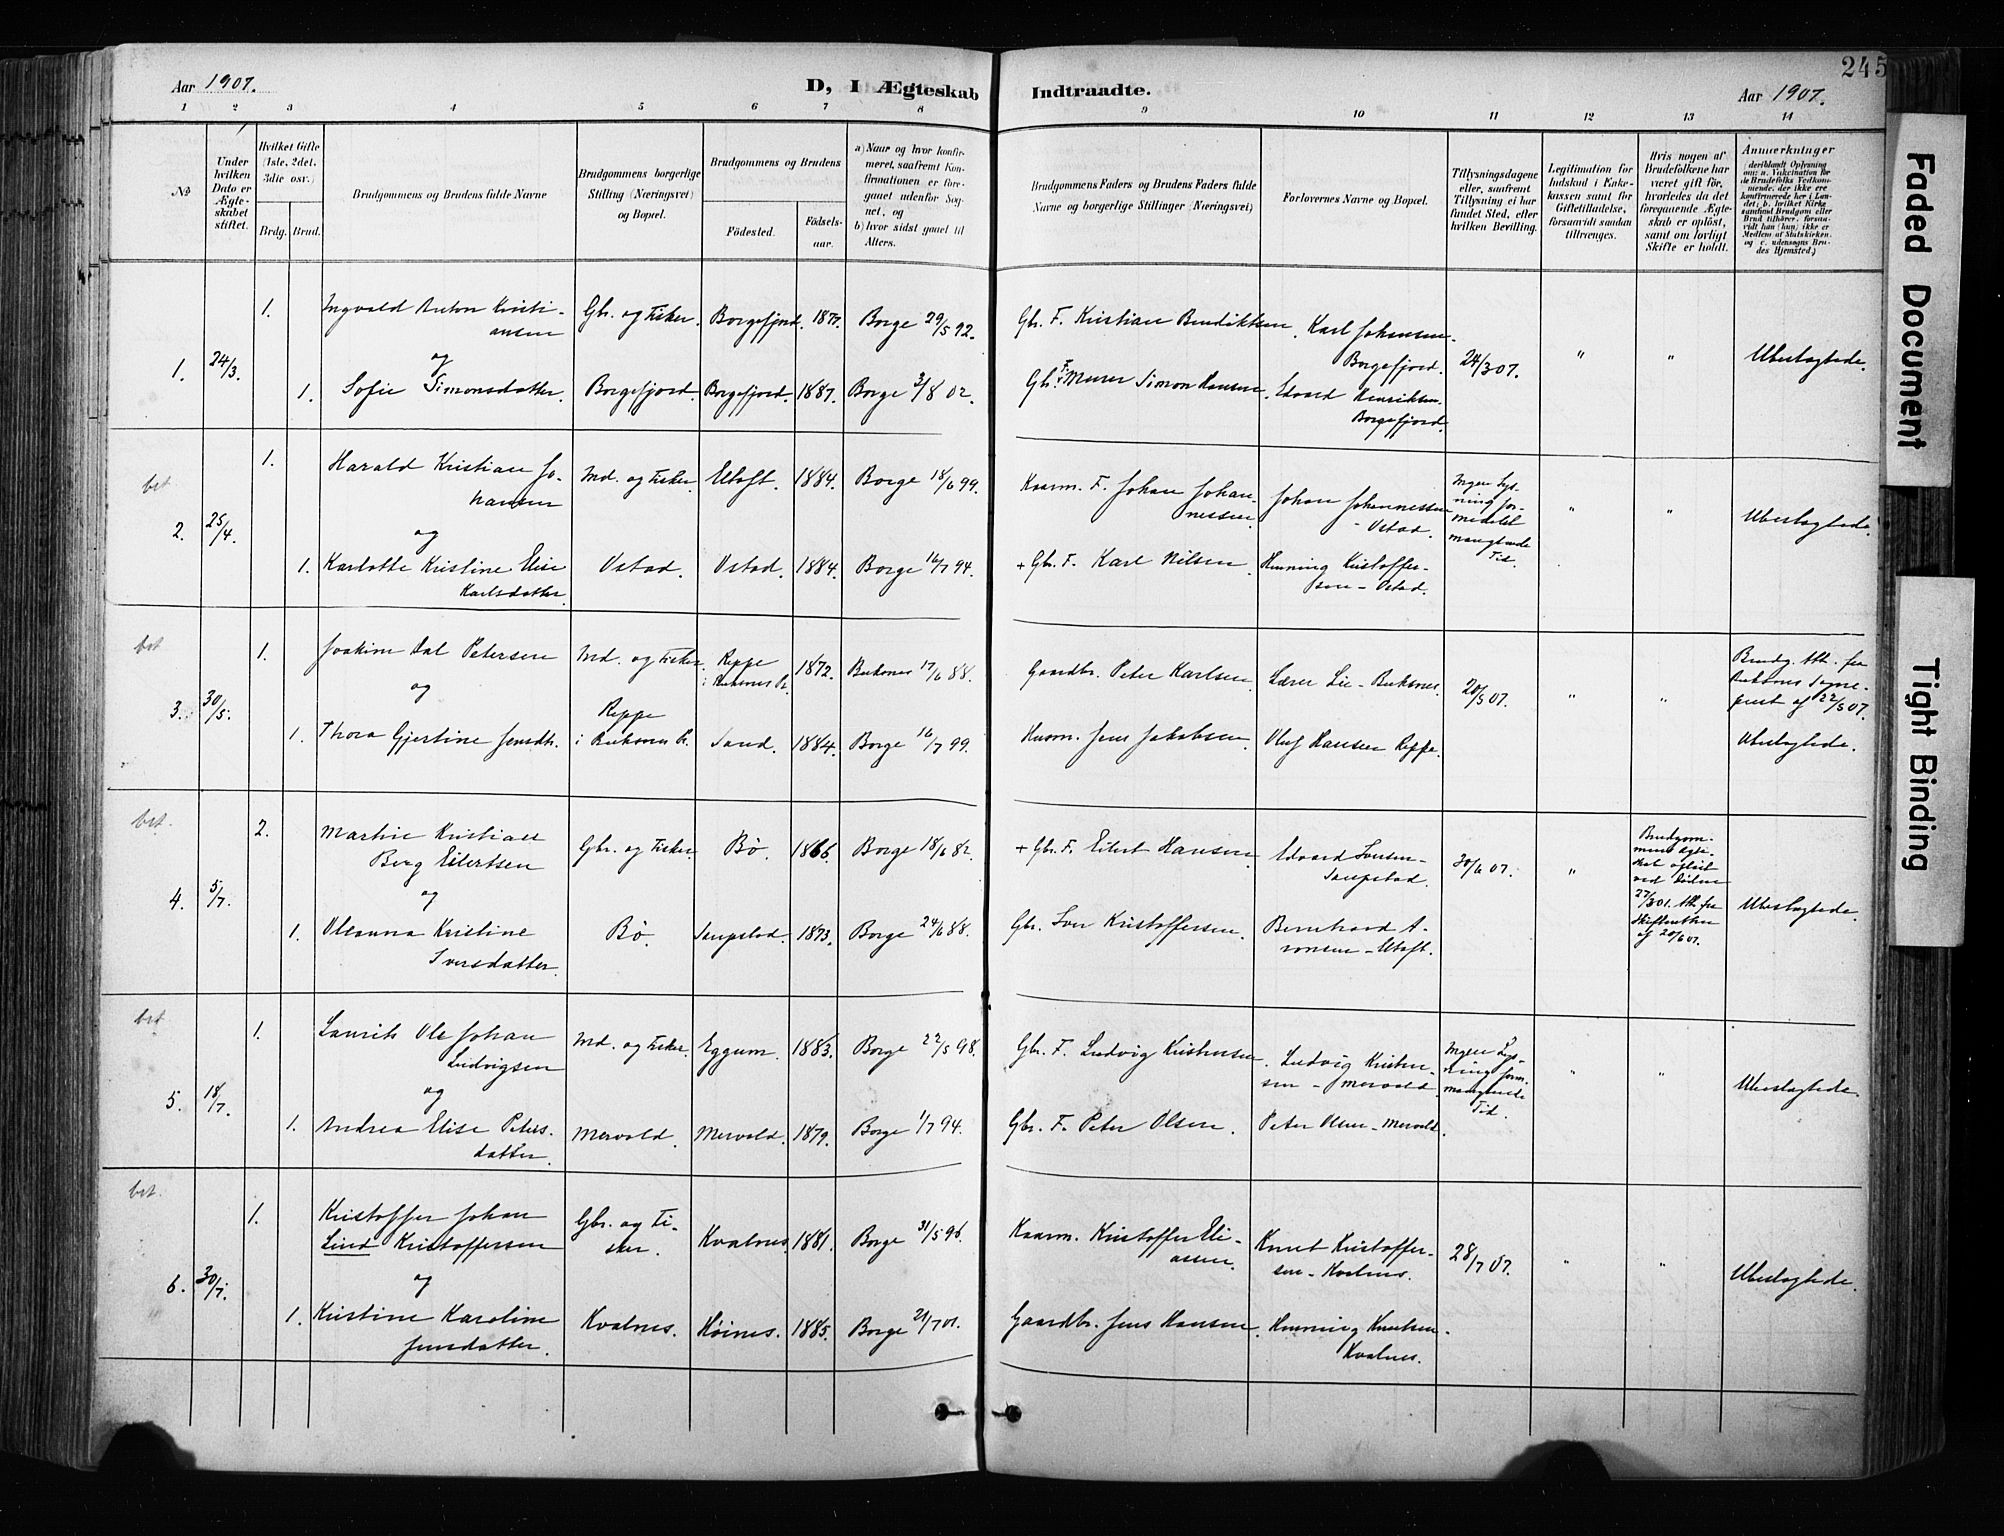 245
Aar 1907.
D, I Ægteskab Indtraadte.
Aar 1907.
1 2 3 4 5 6 7 8 9 10 11 12 13 14
No
Under hvilken Dato er Ægteskabet stiftet.
Hvilket Gifte (1ste, 2det, 3die osv.)
Brdg. Brud.
Brudgommens og Brudens fulde Navne
Brudgommens borgerlige Stilling (Næringsvei) og Bopæl.
Brudgommens og Brudens
Födested.
Födselsaar.
a) Naar og hvor konfirmeret, saafremt Konfirmationen er foregaaet udenfor Sognet, og
b) hvor sidst gaaet til Alters.
Brudgommens Faders og Brudens Faders fulde Navne og borgerlige Stillinger (Næringsvei)
Forlovernes Navne og Bopæl.
Tillysningsdagene eller, saafremt Tillysning ei har fundet Sted, efter hvilken Bevilling.
Legitimation for Indskud i Enkekassen samt for Giftetilladelse, forsaavidt saadan tiltrænges.
Hvis nogen af Brudefolkene har været gift för, hvorledes da det foregaaende Ægteskab er oplöst, samt om lovligt Skifte er holdt.
Anmærkninger
(deriblandt Oplysning om: a. Vakcination for de Brudefolks Vedkommende, der ikke ere konfirmerede her i Landet; b. hvilket Kirkesamfund Brudgom eller Brud tilhörer, forsaavidt han (hun) ikke er Medlem af Statskirken, og c. udensogns Brudes Hjemsted.)
1. 24/3. 1. Ingvald Anton Kristiansen Gbr. og Fisker. Borgefjord. 1877. Borge 29/5 92. Gbr. F. Kristian Bendiktsen. Karl Johansen Borgefjord. 24/3 07. " " Ubeslægtede.
og
1. Sofie Simonsdatter. Borgefjord. Borgefjord. 1887. Borge 3/8 02. Gbr. F. Murer Simon Hansen. Edvard Henriksen Borgefjord.
bet
2. 25/4. 1. Harald Kristian Johansen Ind. og Fisker. Eltoft. 1884. Borge 18/6 99. Kaarm. F. Johan Johannessen. Johan Johannessen - Ustad. Ingen Lysning formedelst manglende Tid. " " Ubeslægtede.
og
1. Karlotte Kristine Elise Karlsdatter. Ustad. Ustad. 1884. Borge 16/7 94. + Gbr. F. Karl Nilsen. Henning Kristoffersen - Ustad.
bet
3. 30/5. 1. Joakim Dal Petersen Ind. og Fisker. Reppe i Buksnes Pr. 1872. Buksnes 17/6 88. Gaardbr. Peter Karlsen. Lærer Lie - Buksnes. 20/5 07. " " Brudg. Att. fra Buksnes Sogneprest af 22/5 07.
og
1. Thora Gjertine Jensdtr. Reppe i Buksnes Pr. Sand. 1884. Borge 16/7 99. Husm. Jens Jakobsen. Oluf Hansen Reppe. Ubeslægtede.
bet.
4. 5/7. 2. Martin Kristian Berg Eilertsen Gbr. og Fisker. Bö. 1866. Borge 18/6 82. + Gbr. F. Eilert Hansen. Edvard Iversen - Saupstad. 30/6 07. " Brudgommens Ægteskab oplöst ved Döden 27/3 01. Att. fra Skifteretten af 20/6 07. Ubeslægtede.
og
1. Oleanna Kristine Iversdatter. Bö. Saupstad. 1873. Borge 24/6 88. Gbr. Iver Kristoffersen. Bernhard Aronsen - Utoft.
bet
5. 18/7. 1. Laurits Ole Johan Ludvigsen Ind. og Fisker. Eggum. 1883. Borge 22/5 98. Gbr. F. Ludvig Kristensen. Ludvig Kristensen - Mervold. Ingen Lysning form. manglende Tid. " " Ubeslægtede.
og
1. Andrea Elise Petersdatter. Mervold. Mervold. 1879. Borge 1/7 94. Gbr. F. Peter Olsen. Peter Olsen - Mervold.
bet.
6. 30/7. 1. Kristoffer Johan Lind Kristoffersen Gbr. og Fisker. Kvalnes. 1881. Borge 31/5 96. Kaarm. Kristoffer Eliassen. Knut Kristoffersen - Kvalnes. 28/7 07. " " Ubeslægtede.
og
1. Kristine Karoline Jensdatter. Kvalnes. Höines. 1885. Borge 21/7 01. Gaardbr. Jens Hansen. Henning Knutsen - Kvalnes.
Faded Document
Tight Binding